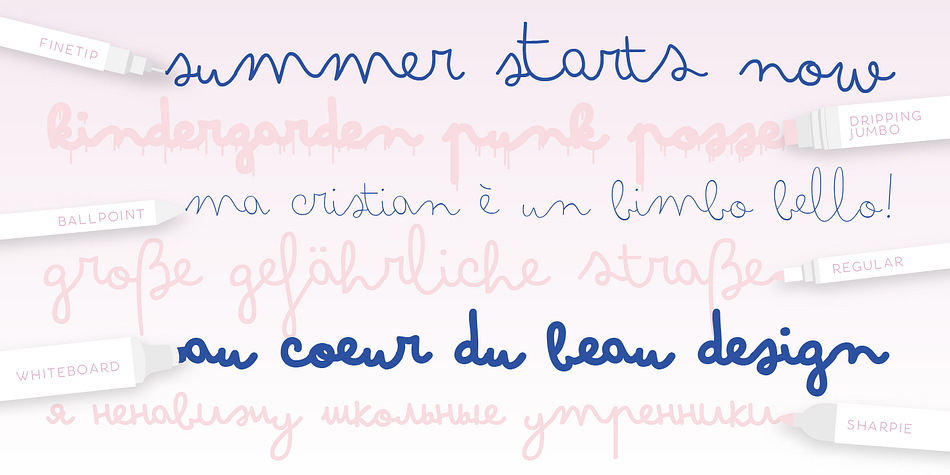 FINETIP
summer starts now
kindergarden punk posse
DRIPPING
JUMBO
ma cristian è un bimbo bello!
BALLPOINT
große gefährliche straße
REGULAR
au coeur du beau design
WHITEBOARD
я ненавижу школьные утренники
SHARPIE